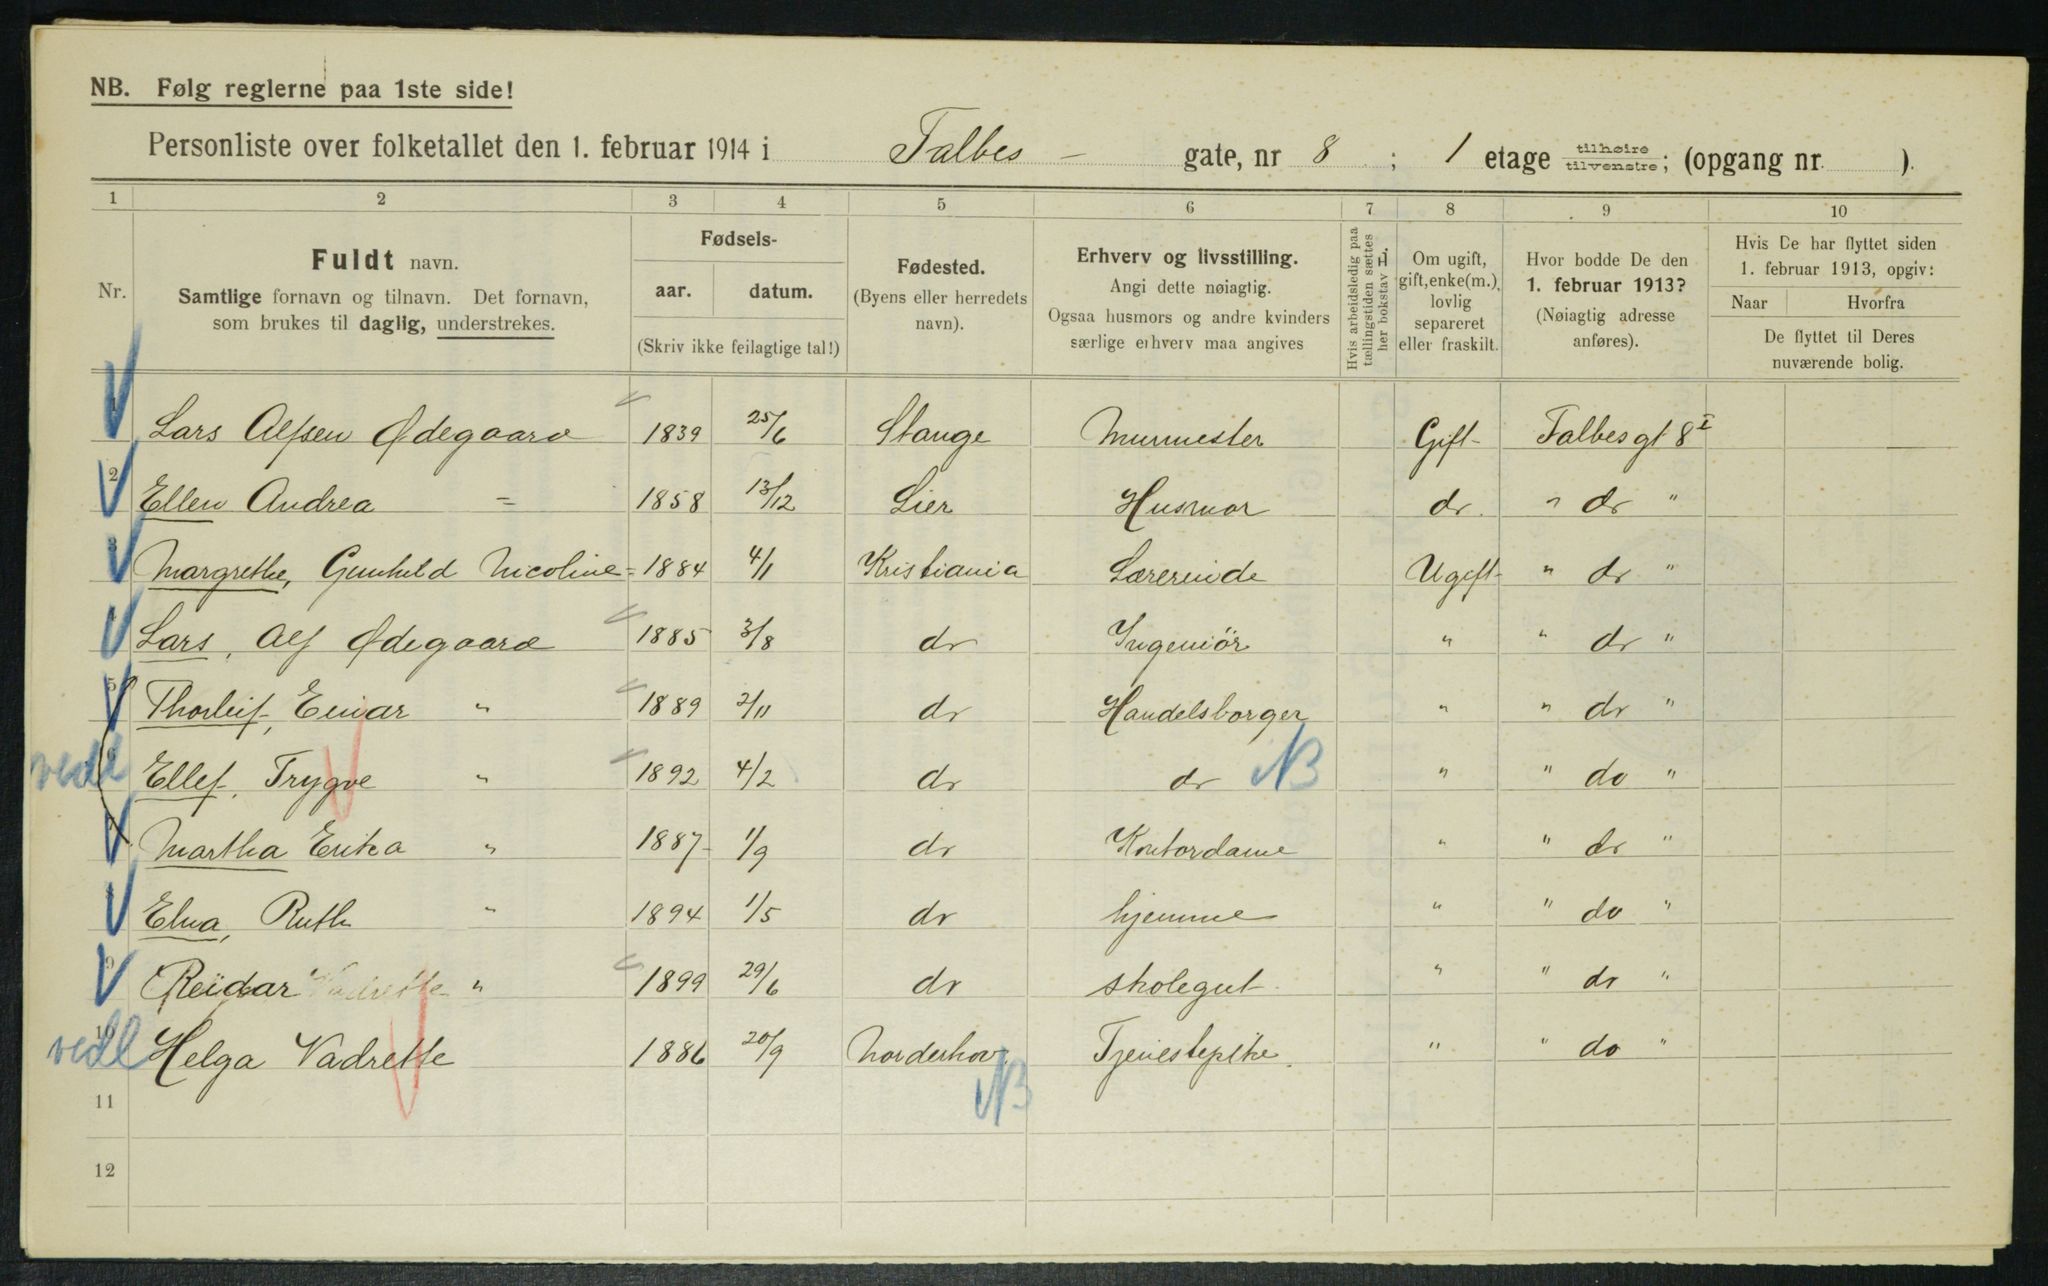 NB. Følg reglerne paa 1ste side!
Personliste over folketallet den 1. februar 1914 i Falbes - gate, nr 8 ; 1 etage tilhøire tilvenstre; (opgang nr ).
1 2 3 4 5 6 7 8 9 10
Nr. Fuldt navn. Samtlige fornavn og tilnavn. Det fornavn, som brukes til daglig, understrekes.
Fødsels- aar. datum. (Skriv ikke feilagtige tal!)
Fødested. (Byens eller herredets navn).
Erhverv og livsstilling. Angi dette nøiagtig. Ogsaa husmors og andre kvinders særlige erhverv maa angives
Hvis arbeidsledig paa tællingstiden sættes her bokstav L.
Om ugift, gift, enke(m.), lovlig separeret eller fraskilt.
Hvor bodde De den 1. februar 1913? (Nøiagtig adresse anføres).
Hvis De har flyttet siden 1. februar 1913, opgiv:
Naar Hvorfra
De flyttet til Deres nuværende bolig.
1 Lars Alfsen Ødegaard 1839 25/6 Stange Murmester Gift Falbesgt 8 I
2 Ellen Andrea = 1858 13/12 Lier Husmor do " do "
3 Margrethe, Gunhild Nicoline = 1884 4/1 Kristiania Lærerinde Ugift " do "
4 Lars, Alf Ødegaard 1885 3/8 do Ingeniör " " do "
5 Thorleif, Einar " 1889 2/11 do Handelsborger " " do "
vedl 6 Ellef, Trygve " 1892 4/2 do do NB " " do "
7 Martha Erika " 1887 1/9 do Kontordame " " do "
8 Elna, Ruth " 1894 1/5 do hjemme " " do "
9 Reidar Vadrette " 1899 29/6 do skolegut " " do "
vedl 10 Helga Vadrette 1886 20/9 Norderhov Tjenestepike " " do "
NB
11
12